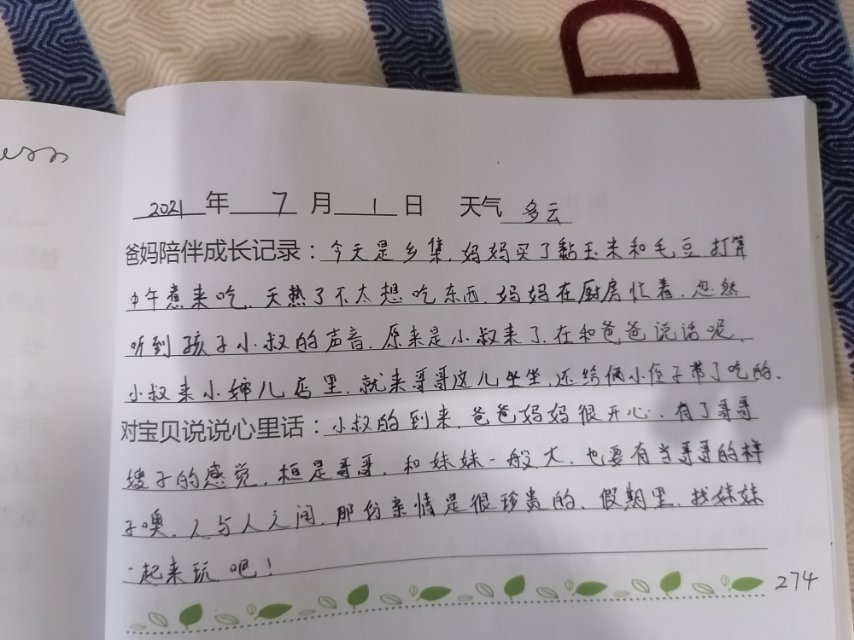 ess
2021年 7 月 1 日 天气 多云
爸妈陪伴成长记录：今天是乡集，妈妈买了黏玉米和毛豆，打算
中午煮来吃，天热了不太想吃东西，妈妈在厨房忙着，忽然
听到孩子小叔的声音，原来是小叔来了，在和爸爸说话呢，
小叔来小婶儿店里，就来哥哥这儿坐坐，还给俩小侄子带了吃的。
对宝贝说说心里话：小叔的到来，爸爸妈妈很开心，有了哥哥
嫂子的感觉，桓是哥哥，和妹妹一般大，也要有当哥哥的样
子噢，人与人之间，那份亲情是很珍贵的，假期里，找妹妹
一起来玩吧！
274
D